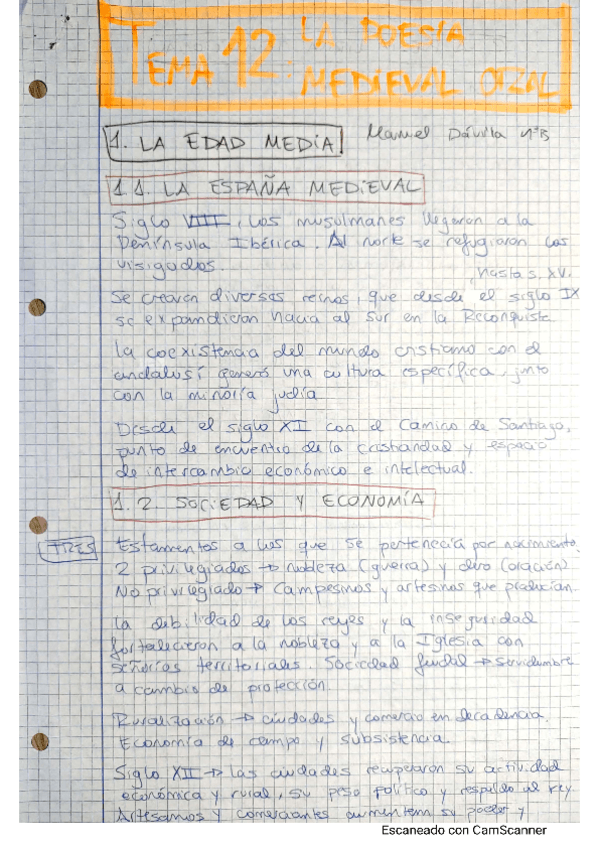 TEMA 12: LA POESÍA
MEDIEVAL ORAL
1. LA EDAD MEDIA Manuel Dávila 1ºB
1.1. LA ESPAÑA MEDIEVAL
Siglo VIII, los musulmanes llegaron a la
Península Ibérica. Al norte se refugiaron los
visigodos.
hasta s. XV.
Se crearon diversos reinos, que desde el siglo IX
se expandieron hacia al sur en la Reconquista
La coexistencia del mundo cristiano con el
andalusí generó una cultura específica, junto
con la minoría judía
Desde el siglo XI con el Camino de Santiago,
punto de encuentro de la cristiandad y espacio
de intercambio económico e intelectual.
1.2. SOCIEDAD Y ECONOMÍA
TRES Estamentos a los que se pertenecía por nacimiento.
2 privilegiados → nobleza (guerra) y clero (oración)
No privilegiado → Campesinos y artesanos que producían.
La debilidad de los reyes y la inseguridad
fortalecieron a la nobleza y a la Iglesia con
señoríos territoriales. Sociedad feudal → servidumbre
a cambio de protección.
Ruralización → ciudades y comercio en decadencia.
Economía de campo y subsistencia.
Siglo XII → las ciudades recuperaron su actividad
económica y rural, su peso político y respaldo al rey
Artesanos y comerciantes aumentem su poder y
Escaneado con CamScanner